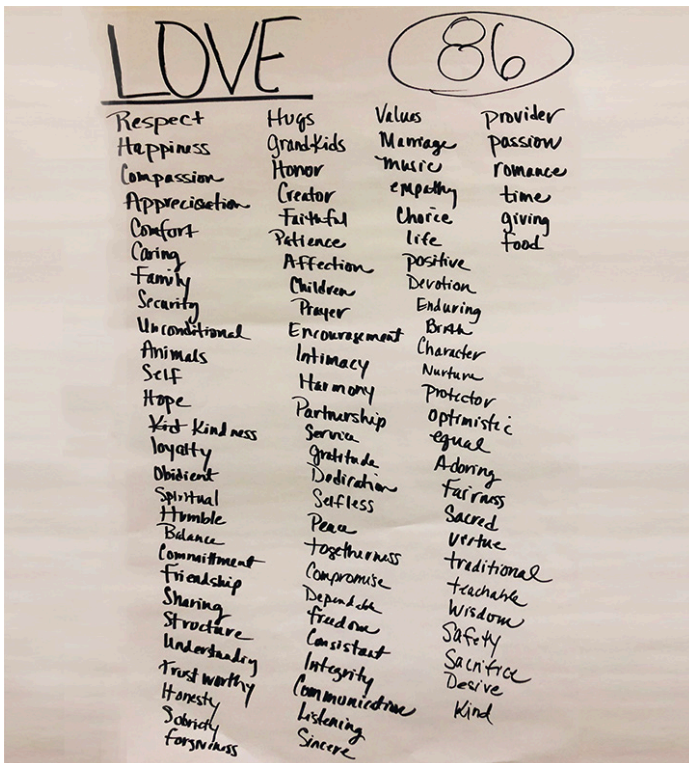 LOVE
86
Respect
Happiness
Compassion
Appreciation
Comfort
Caring
Family
Security
Unconditional
Animals
Self
Hope
Kindness
loyalty
Obidient
Spiritual
Humble
Balance
Committment
Friendship
Sharing
Structure
Understanding
Trustworthy
Honesty
Sobriety
forgiviness
Hugs
Grand-Kids
Honor
Creator
Faithful
Patience
Affection
Children
Prayer
Encouragement
Intimacy
Harmony
Partnership
Service
gratitude
Dedication
Selfless
Peace
togetherness
Compromise
Dependable
freedom
Consistant
Integrity
Communication
Listening
Sincere
Values
Marriage
music
empathy
Choice
life
positive
Devotion
Enduring
Birth
Character
Nurture
Protector
optimistic
equal
Adoring
Fairness
Sacred
Vertue
traditional
teachable
Wisdom
Safety
Sacrifice
Desire
Kind
provider
passion
romance
time
giving
food